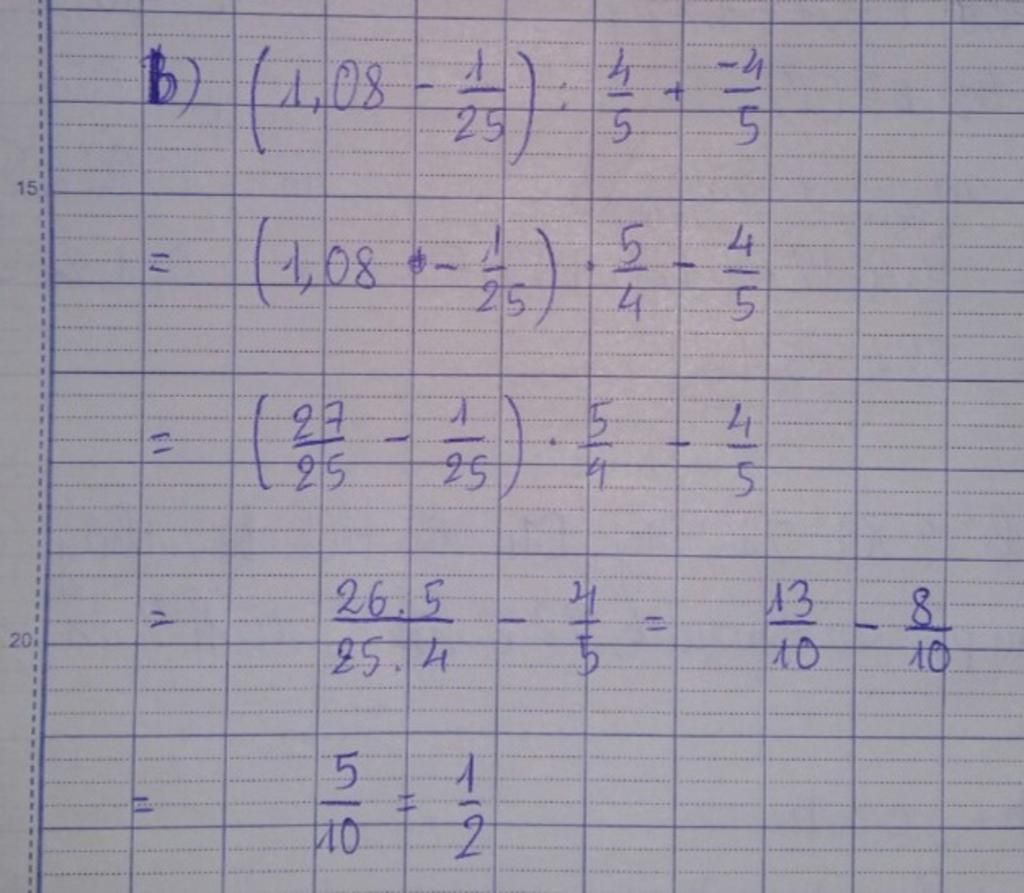 b) (1,08 - 1/25) : 4/5 + -4/5
15
= (1,08 - 1/25) . 5/4 - 4/5
= (27/25 - 1/25) . 5/4 - 4/5
20
= 26.5/25.4 - 4/5 = 13/10 - 8/10
= 5/10 = 1/2